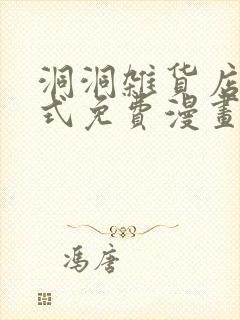 洞洞雜貨店
式免費漫畫
馮唐